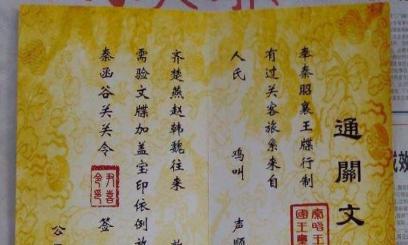 通關文
奉秦昭襄王牒行制
有过关客旅系来自
人氏 鸣叫 声顺
齐楚燕赵韩魏往来 放
需验文牒加盖宝印依例放
秦函谷关关令 签
尹喜
公